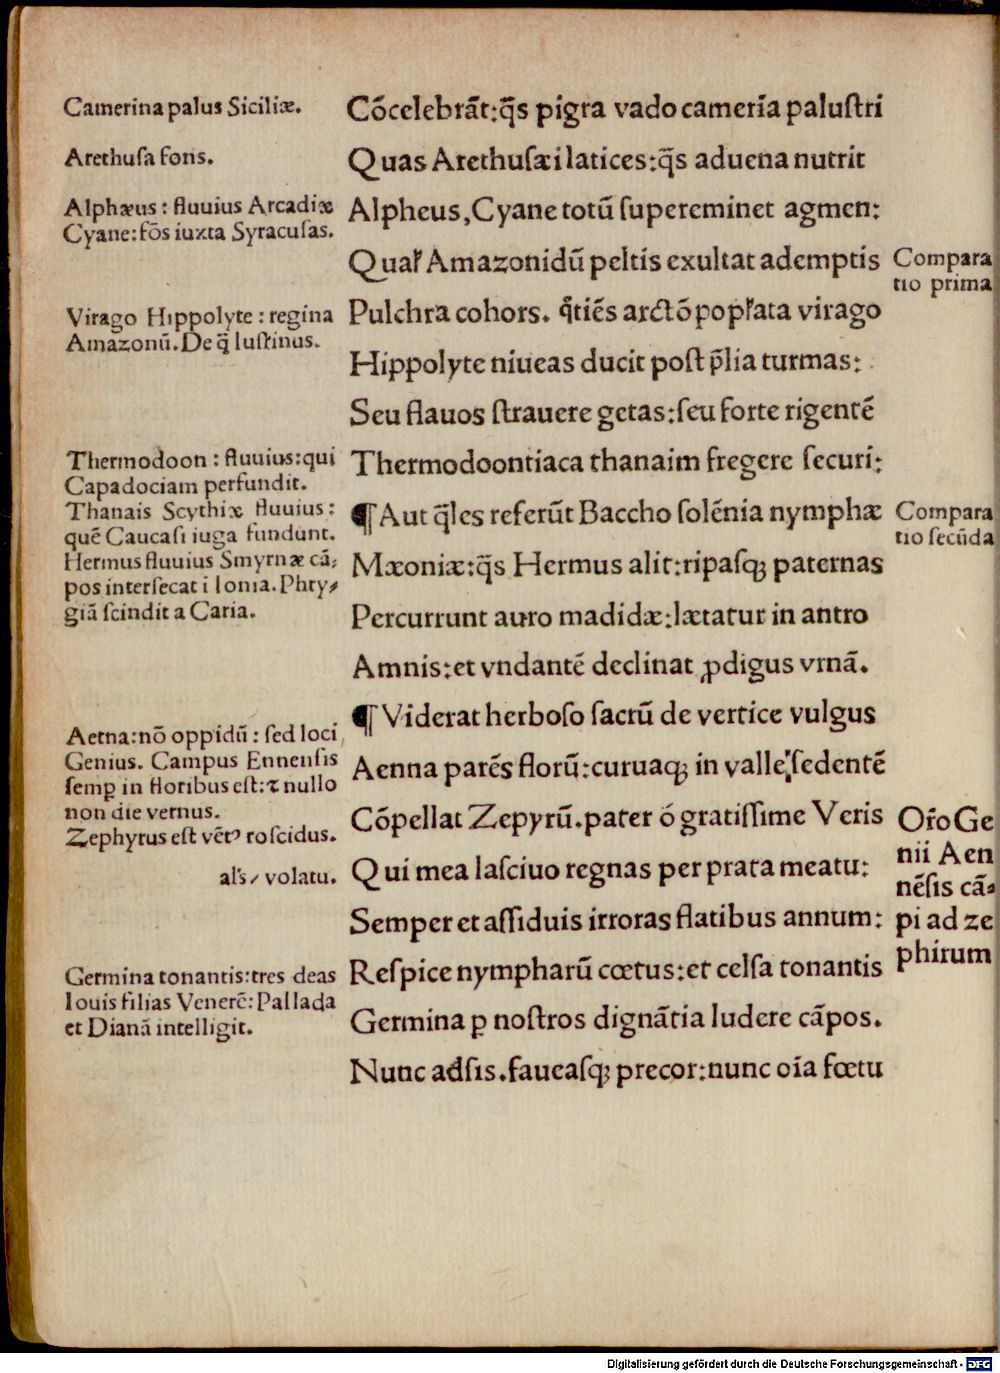 Camerina palus Siciliæ.
Arethuſa fons.
Alphæus : fluuius Arcadiæ
Cyane: fōs iuxta Syracuſas.
Virago Hippolyte : regina
Amazonū. De q̄ Iuſtinus.
Thermodoon : fluuius: qui
Capadociam perfundit.
Thanais Scythiæ fluuius :
quē Caucaſi iuga fundunt.
Hermus fluuius Smyrnæ cā⸗
pos interſecat i Ionia. Phry⸗
giā ſcindit a Caria.
Aetna: nō oppidū : ſed loci
Genius. Campus Ennenſis
ſemꝑ in floribus eſt: ⁊ nullo
non die vernus.
Zephyrus eſt vētꝰ roſcidus.
al's⸝ volatu.
Germina tonantis: tres deas
Iouis filias Venerē: Pallada
et Dianā intelligit.
Cōcelebrāt: q̄s pigra vado camerīa paluſtri
Quas Arethuſæi latices: q̄s aduena nutrit
Alpheus, Cyane totū ſupereminet agmen:
Qual' Amazonidū peltis exultat ademptis
Pulchra cohors. q̄tiēs arctō popl'ata virago
Hippolyte niueas ducit poſt p̄lia turmas:
Seu flauos ſtrauere getas: ſeu forte rigentē
Thermodoontiaca thanaim fregere ſecuri:
¶ Aut q̄les referūt Baccho ſolēnia nymphæ
Mæoniæ: q̄s Hermus alit: ripaſqꝫ paternas
Percurrunt auro madidæ: lætatur in antro
Amnis: et vndantē declinat ꝓdigus vrnā.
¶ Viderat herboſo ſacrū de vertice vulgus
Aenna parēs florū: curuaqꝫ in valle ſedentē
Cōpellat Zepyrū. pater ó gratiſſime Veris
Qui mea laſciuo regnas per prata meatu:
Semper et aſſiduis irroras flatibus annum:
Reſpice nympharū cœtus: et celſa tonantis
Germina ꝑ noſtros dignātia ludere cāpos.
Nunc adſis. faueaſqꝫ precor: nunc oīa fœtu
Compara
tio prima
Compara
tio ſecūda
Or̄o Ge
nii Aen
nēſis cā⸗
pi ad ze
phirum
Digitalisierung gefördert durch die Deutsche Forschungsgemeinschaft - DFG